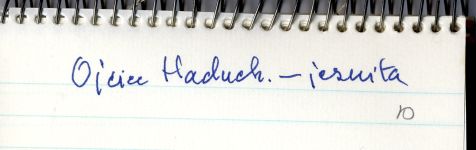 Ojciec Haduch. – jezuita
10